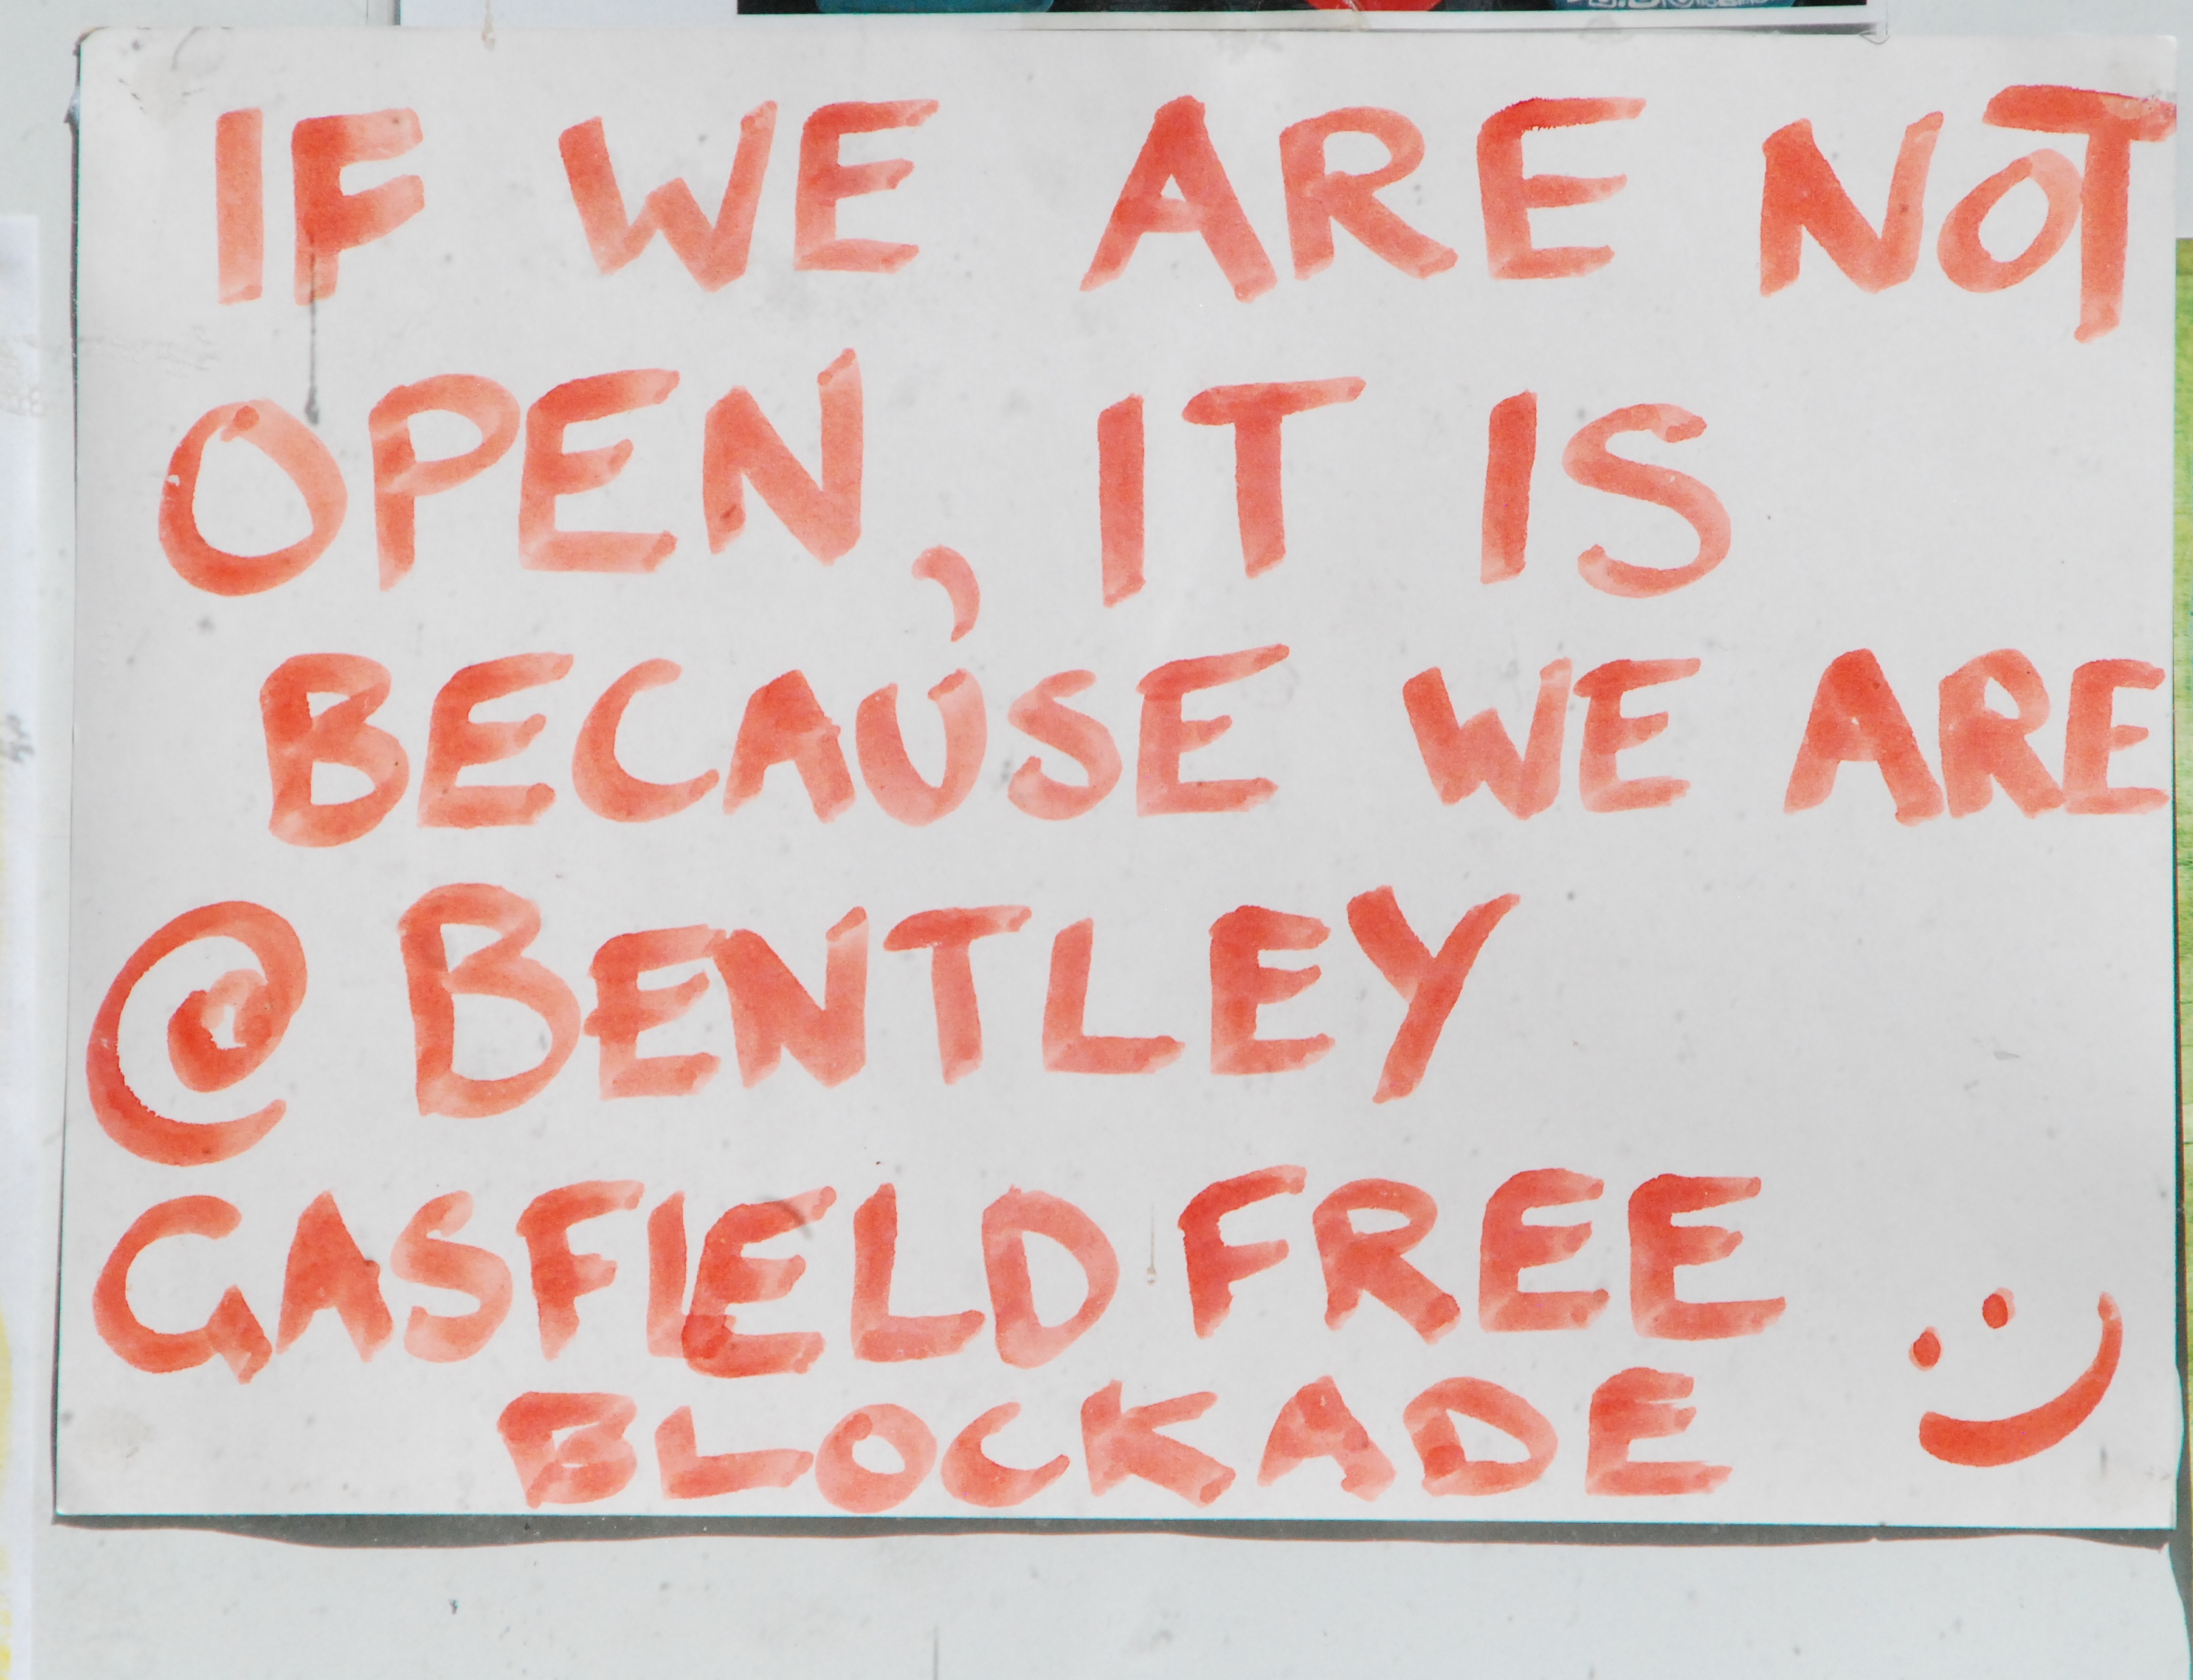 IF WE ARE NOT
OPEN, IT IS
BECAUSE WE ARE
@ BENTLEY
GASFIELD FREE
BLOCKADE